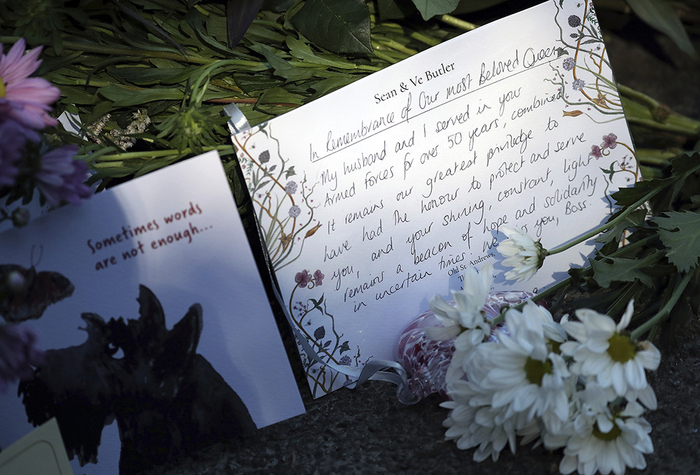 Sean & Vc Butler
In Remembrance of Our most Beloved Queen
My husband and I served in your
Armed Forces for over 50 years, combined.
It remains our greatest privilege to
have had the honour to protect and serve
you, and your shining, constant, light
remains a beacon of hope and solidarity
in uncertain times. you, Boss.
Old St. Andrews
Sometimes words
are not enough...